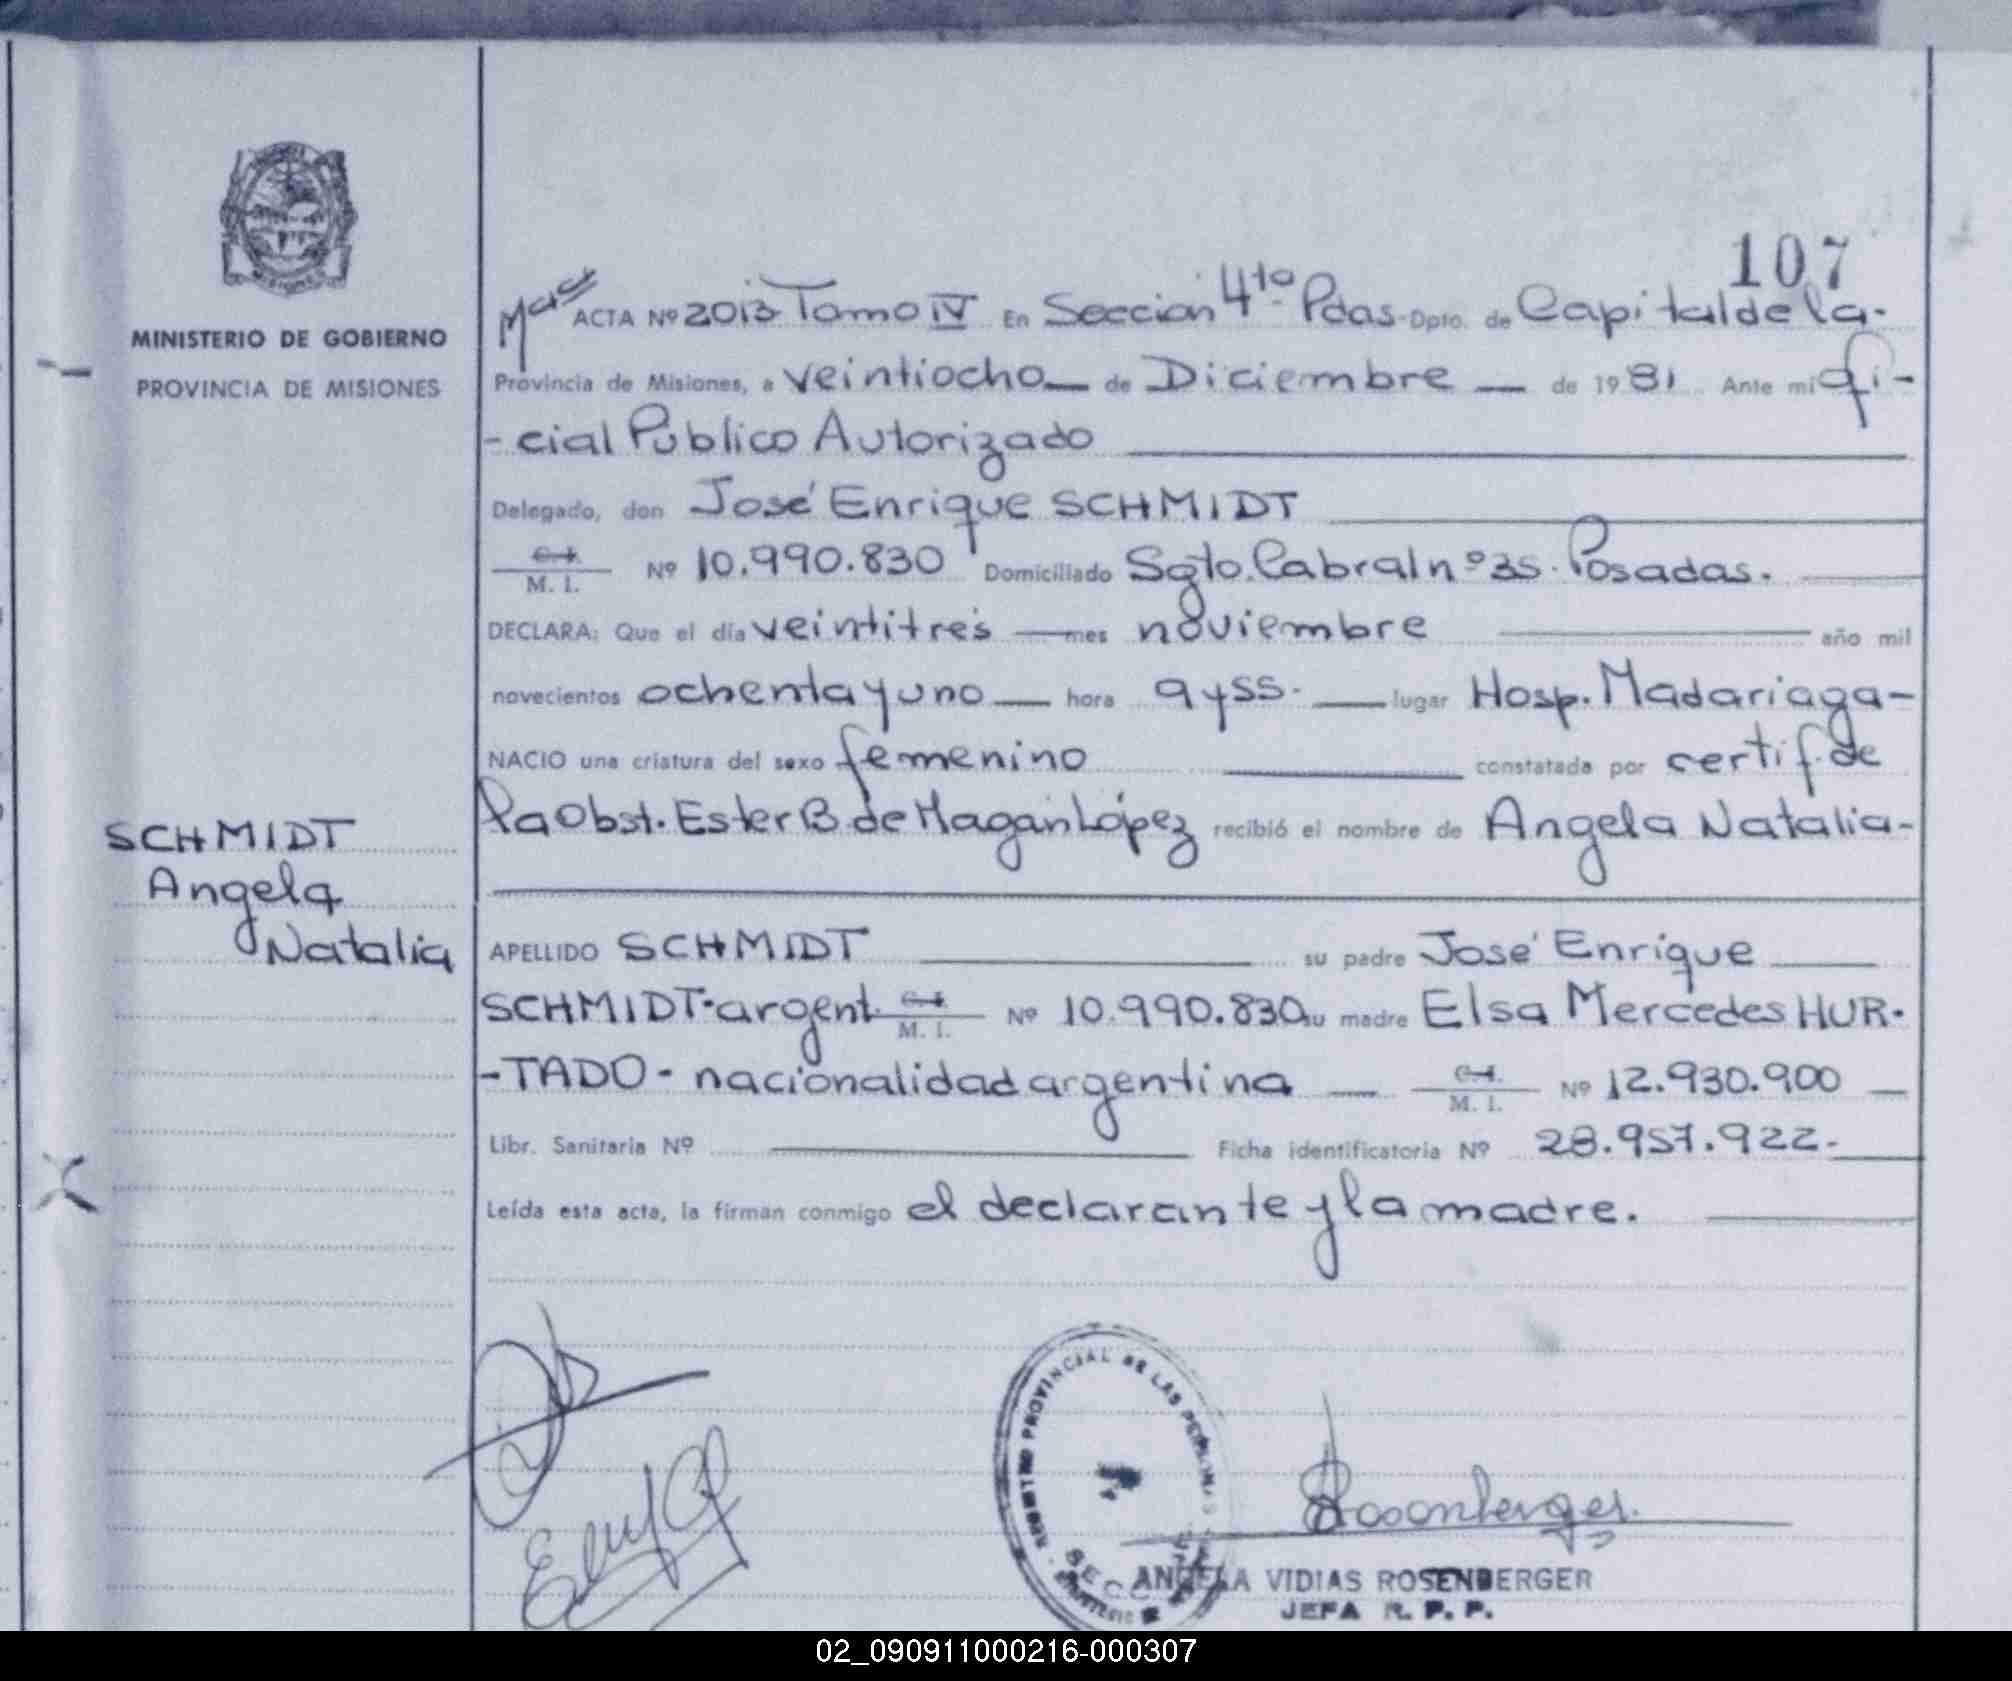 107
MINISTERIO DE GOBIERNO
PROVINCIA DE MISIONES
ACTA Nº 2013 Tomo IV En Sección 4ta Pdas. Dpto. de Capital de la-
Provincia de Misiones, a veintiocho — de Diciembre — de 1981 Ante mi Ofi-
-cial Público Autorizado
Delegado, don José Enrique SCHMIDT
C. I. M. I. Nº 10.990.830 Domiciliado Sgto. Cabral nº 35. Posadas.
DECLARA: Que el día veintitrés — mes noviembre año mil
novecientos ochenta y uno — hora 9 y 55. — lugar Hosp. Madariaga-
NACIO una criatura del sexo femenino constatada por certif. de
la Obst. Ester B. de Magan López recibió el nombre de Angela Natalia-
SCHMIDT
Angela
Natalia
APELLIDO SCHMIDT su padre José Enrique
SCHMIDT-argent. C. I. M. I. Nº 10.990.830 su madre Elsa Mercedes HUR-
-TADO- nacionalidad argentina — C. I. M. I. Nº 12.930.900 —
Libr. Sanitaria Nº Ficha identificatoria Nº 28.957.922.-
Leída esta acta, la firman conmigo el declarante y la madre.
REGISTRO PROVINCIAL DE LAS PERSONAS
SECC
Rosenberger
ANGELA VIDIAS ROSENBERGER
JEFA R. P. P.
02_090911000216-000307